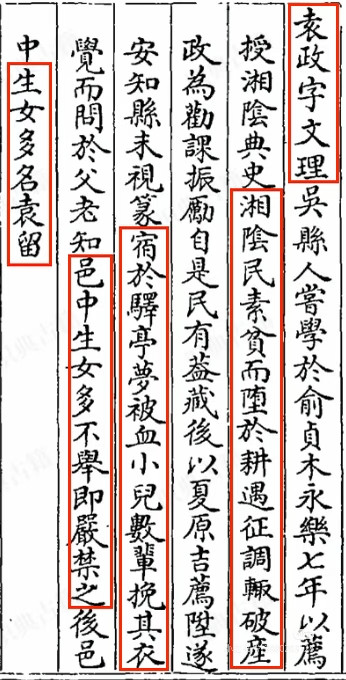 袁政字文理吳縣人嘗學於俞貞木永樂七年以薦
授湘陰典史湘陰民素貧而墮於耕遇征調輙破産
政為勸課振勵自是民有葢藏後以夏原吉薦陞遂
安知縣未視篆宿於驛亭夢被血小兒數輩挽其衣
覺而問於父老知邑中生女多不舉即嚴禁之後邑
中生女多名袁留